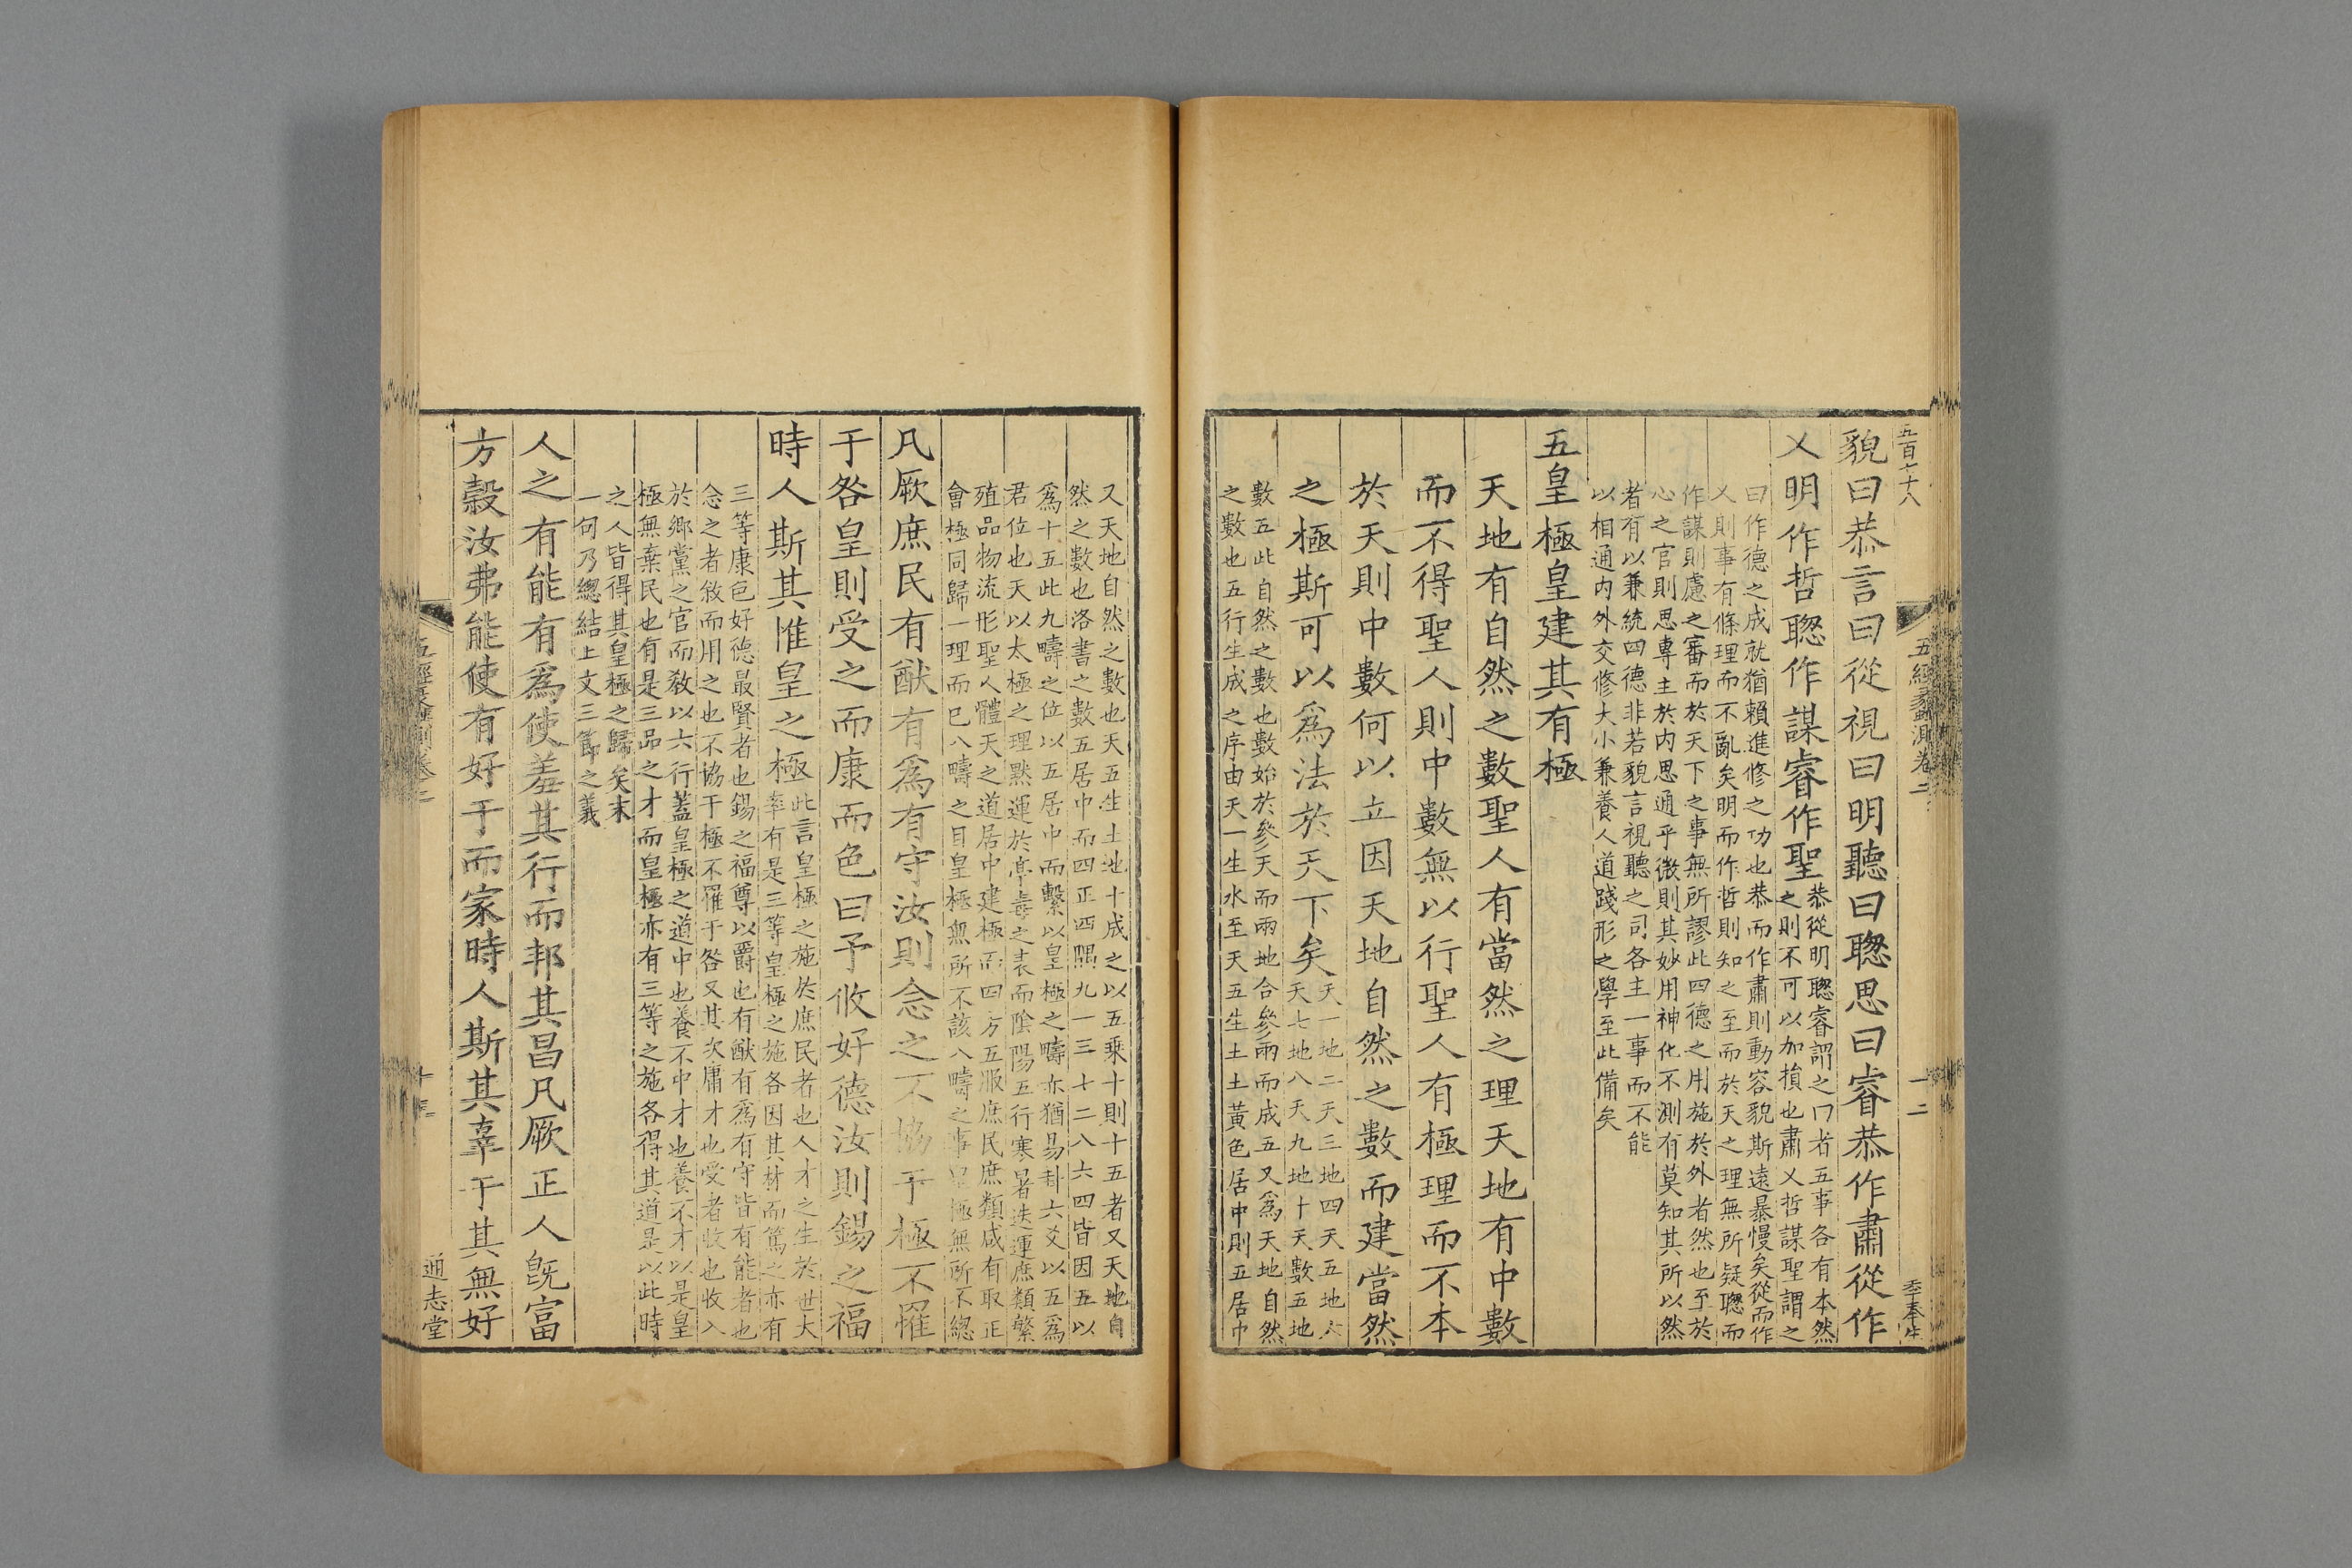 五百七十八
五經蠡測卷二
一二
貌曰恭言曰從視曰明聽曰聦思曰睿恭作肅從作
乂明作哲聦作謀睿作聖
恭從明聦睿謂之曰者五事各有本然
之則不可以加損也肅乂哲謀聖謂之
曰作德之成就猶賴進修之功也恭而作肅則動容貌斯遠暴慢矣從而作
乂則事有條理而不亂矣明而作哲則知之至而於天之理無所疑聦而
作謀則慮之審而於天下之事無所謬此四德之用施於外者然也至於
心之官則思專主於内思通乎微則其妙用神化不測有莫知其所以然
者有以兼統四德非若貌言視聽之司各主一事而不能
以相通内外交修大小兼養人道踐形之學至此備矣
五皇極皇建其有極
天地有自然之數聖人有當然之理天地有中數
而不得聖人則中數無以行聖人有極理而不本
於天則中數何以立因天地自然之數而建當然
之極斯可以爲法於天下矣
天一地二天三地四天五地六
天七地八天九地十天數五地
數五此自然之數也數始於參天而兩地合參兩而成五又爲天地自然
之數也五行生成之序由天一生水至天五生土土黃色居中則五居中
又天地自然之數也天五生土地十成之以五乘十則十五者又天地自
然之數也洛書之數五居中而四正四隅九一三七二八六四皆因五以
爲十五此九疇之位以五居中而繫以皇極之疇亦猶易卦六爻以五爲
君位也天以太極之理黙運於亭毒之表而陰陽五行寒暑迭運庶類繁
殖品物流形聖人體天之道居中建極而四方五服庶民庶類咸有取正
會極同歸一理而已八疇之目皇極無所不該八疇之事皇極無所不總
凡厥庶民有猷有爲有守汝則念之不協于極不罹
于咎皇則受之而康而色曰予攸好德汝則錫之福
時人斯其惟皇之極
此言皇極之施於庶民者也人才之生於世大
率有是三等皇極之施各因其材而篤之亦有
三等康色好德最賢者也錫之福尊以爵也有猷有爲有守皆有能者也
念之者敘而用之也不協于極不罹于咎又其次庸才也受者收也收入
於鄉黨之官而敎以六行蓋皇極之道中也養不中才也養不才以是皇
極無棄民也有是三品之才而皇極亦有三等之施各得其道是以此時
之人皆得其皇極之歸矣末
一句乃總結上文三節之義
人之有能有爲使羞其行而邦其昌凡厥正人旣富
方穀汝弗能使有好于而家時人斯其辜于其無好
通志堂